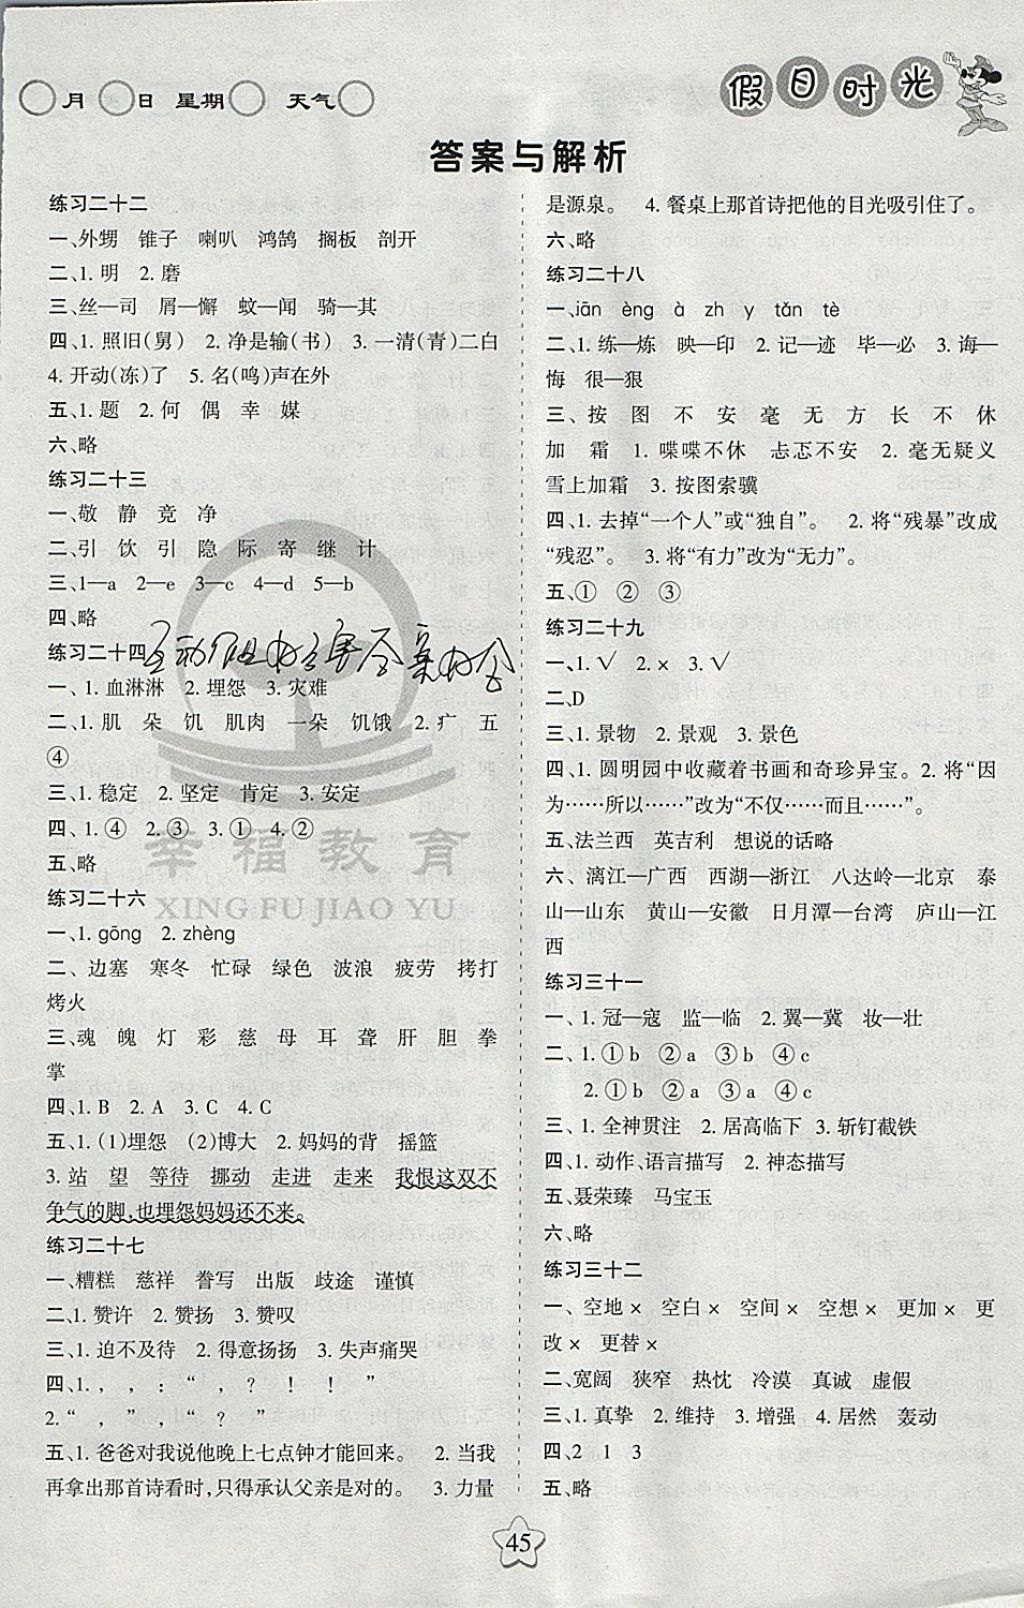 月 日 星期 天气
假日时光
答案与解析
练习二十二
一、外甥 锥子 喇叭 鸿鹄 搁板 剖开
二、1. 明 2. 磨
三、丝—司 屑—懈 蚊—闻 骑—其
四、1. 照旧(舅) 2. 净是输(书) 3. 一清(青)二白
4. 开动(冻)了 5. 名(鸣)声在外
五、1. 题 2. 何 偶 幸 媒
六、略
练习二十三
一、敬 静 竞 净
二、引 饮 引 隐 际 寄 继 计
三、1—a 2—e 3—c 4—d 5—b
四、略
练习二十四
一、1. 血淋淋 2. 埋怨 3. 灾难
二、1. 肌 朵 饥 肌肉 一朵 饥饿 2. 疒 五
④
三、1. 稳定 2. 坚定 肯定 3. 安定
四、1. ④ 2. ③ 3. ① 4. ②
五、略
幸福教育
XING FU JIAO YU
练习二十六
一、1. gōng 2. zhèng
二、边塞 寒冬 忙碌 绿色 波浪 疲劳 拷打
烤火
三、魂 魄 灯 彩 慈 母 耳 聋 肝 胆 拳
掌
四、1. B 2. A 3. C 4. C
五、1. (1)埋怨 (2)博大 2. 妈妈的背 摇篮
3. 站 望 等待 挪动 走进 走来 我恨这双不
争气的脚,也埋怨妈妈还不来。
练习二十七
一、糟糕 慈祥 誊写 出版 歧途 谨慎
二、1. 赞许 2. 赞扬 3. 赞叹
三、1. 迫不及待 2. 得意扬扬 3. 失声痛哭
四、1. , , : “ , ? ! ! ”
2. “ , ” , “ , ? ”
五、1. 爸爸对我说他晚上七点钟才能回来。 2. 当我
再拿出那首诗看时,只得承认父亲是对的。 3. 力量
是源泉。 4. 餐桌上那首诗把他的目光吸引住了。
六、略
练习二十八
一、jiān èng à zh y tǎn tè
二、1. 练—炼 映—印 2. 记—迹 毕—必 3. 诲—
悔 很—狠
三、按 图 不 安 毫 无 方 长 不 休
加 霜 1. 喋喋不休 忐忑不安 2. 毫无疑义
雪上加霜 3. 按图索骥
四、1. 去掉“一个人”或“独自”。 2. 将“残暴”改成
“残忍”。 3. 将“有力”改为“无力”。
五、① ② ③
练习二十九
一、1. √ 2. × 3. √
二、D
三、1. 景物 2. 景观 3. 景色
四、1. 圆明园中收藏着书画和奇珍异宝。 2. 将“因
为……所以……”改为“不仅……而且……”。
五、法兰西 英吉利 想说的话略
六、漓江—广西 西湖—浙江 八达岭—北京 泰
山—山东 黄山—安徽 日月潭—台湾 庐山—江
西
练习三十一
一、1. 冠—寇 监—临 2. 翼—冀 妆—壮
二、1. ①b ②a ③b ④c
2. ①b ②a ③a ④c
三、1. 全神贯注 2. 居高临下 3. 斩钉截铁
四、1. 动作、语言描写 2. 神态描写
五、聂荣臻 马宝玉
六、略
练习三十二
一、空地× 空白× 空间× 空想× 更加× 更
改× 更替×
二、宽阔 狭窄 热忱 冷漠 真诚 虚假
三、1. 真挚 2. 维持 3. 增强 4. 居然 轰动
四、2 1 3
五、略
45